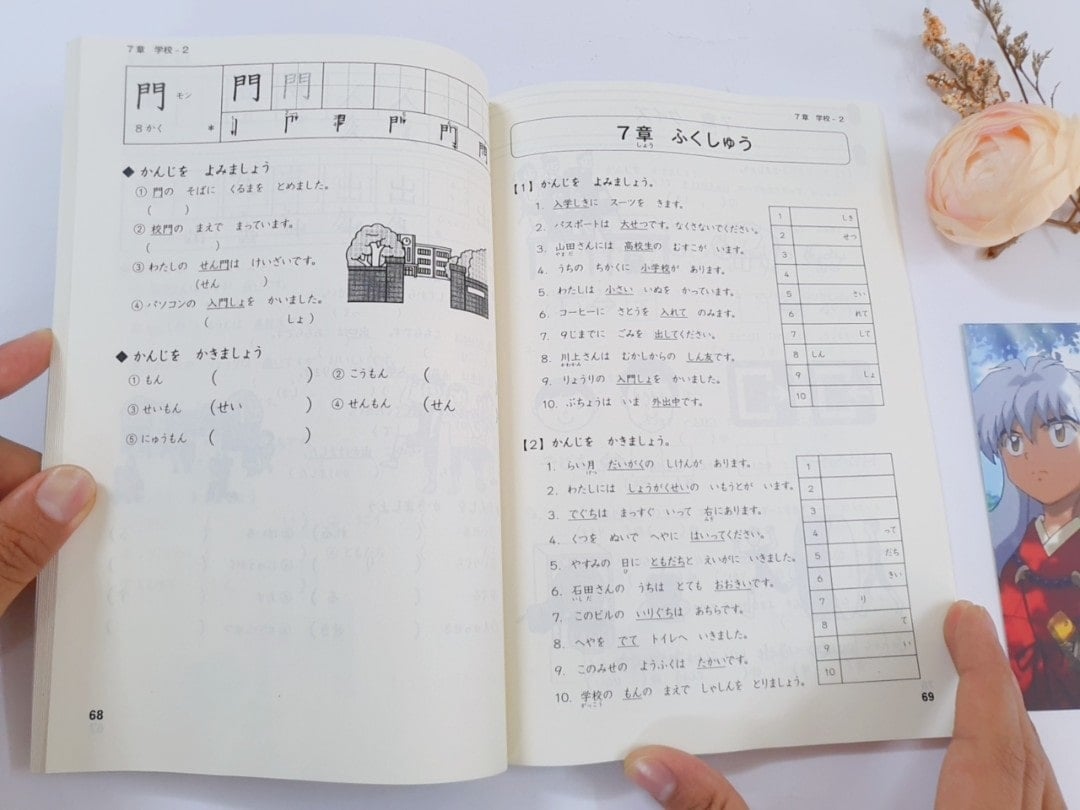 7章 学校-2
門 モン 門 門
8かく *
◆ かんじを よみましょう
① 門の そばに くるまを とめました。
( )
② 校門の まえで まっています。
( )
③ わたしの せん門は けいざいです。
(せん )
④ パソコンの 入門しょを かいました。
( しょ )
◆ かんじを かきましょう
① もん ( ) ② こうもん (
③ せいもん (せい ) ④ せんもん (せん
⑤ にゅうもん ( )
68
7章 学校-2
7章 ふくしゅう
しょう
【1】かんじを よみましょう。
1. 入学しきに スーツを きます。
2. パスポートは 大せつです。なくさないでください。
3. 山田さんには 高校生の むすこが います。
やまだ
4. うちの ちかくに 小学校が あります。
5. わたしは 小さい いぬを かっています。
6. コーヒーに さとうを 入れて のみます。
7. 9じまでに ごみを 出してください。
8. 川上さんは むかしからの しん友です。
かわかみ
9. りょうりの 入門しょを かいました。
10. ぶちょうは いま 外出中です。
1 しき
2 せつ
3
4
5 さい
6 れて
7 して
8 しん
9 しょ
10
【2】かんじを かきましょう。
1. らい月 だいがくの しけんが あります。
げつ
2. わたしには しょうがくせいの いもうとが います。
3. でぐちは まっすぐ いって 右にあります。
みぎ
4. くつを ぬいで へやに はいってください。
5. やすみの 日に ともだちと えいがに いきました。
ひ
6. 石田さんの うちは とても おおきいです。
いしだ
7. このビルの いりぐちは あちらです。
8. へやを でて トイレへ いきました。
9. このみせの ようふくは たかいです。
10. 学校の もんの まえで しゃしんを とりましょう。
がっこう
1
2
3
4 って
5 だち
6 きい
7 り
8 て
9 い
10
69